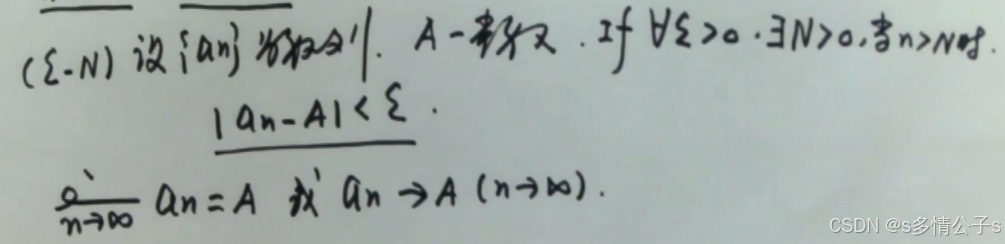 (ε-N) 设{an}为数列. A-常数. If ∀ε>0.∃N>0,当n>N时.
|an-A|<ε.
n→∞ an=A 或 an→A (n→∞).
CSDN @s多情公子s